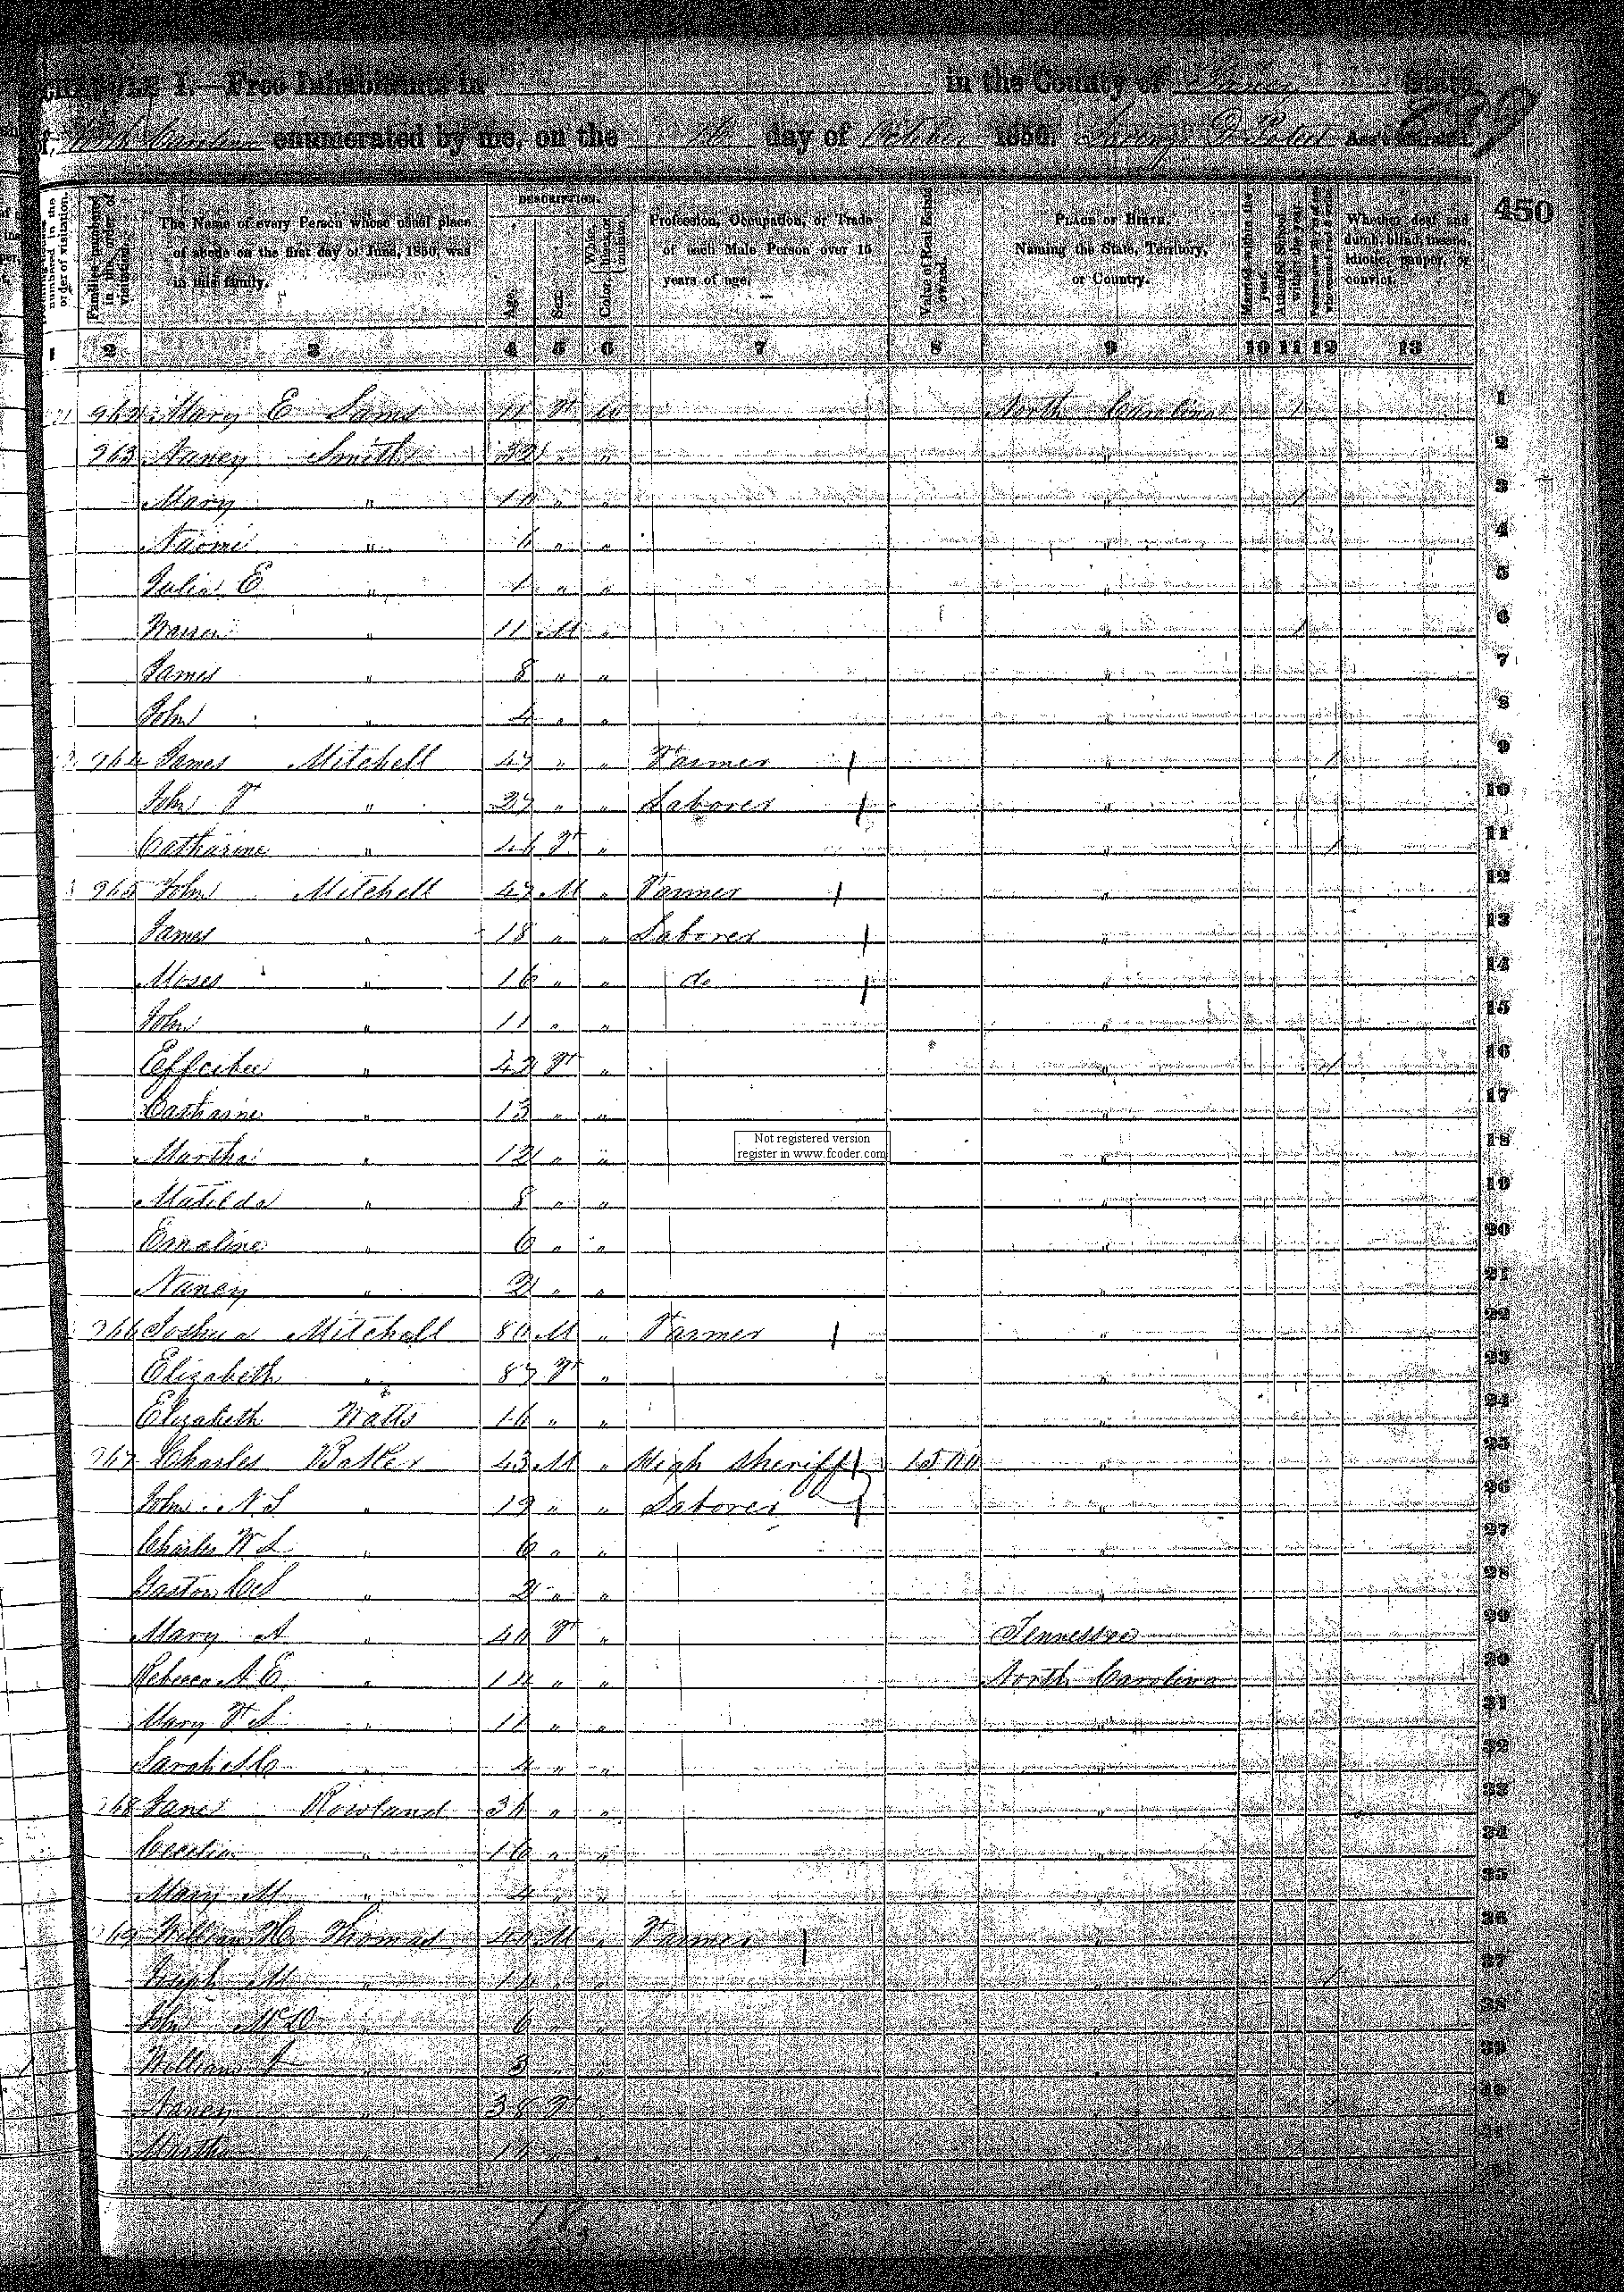 SCHEDULE I.—Free Inhabitants in in the County of Yancy State
of North Carolina enumerated by me, on the day of October 1850. Ass't Marshal.
450
Dwelling-houses numbered in the order of visitation.
Families numbered in the order of visitation.
The Name of every Person whose usual place of abode on the first day of June, 1850, was in this family.
DESCRIPTION.
Age.
Sex.
Color, White, black, or mulatto.
Profession, Occupation, or Trade of each Male Person over 15 years of age.
Value of Real Estate owned.
PLACE OF BIRTH. Naming the State, Territory, or Country.
Married within the year.
Attended School within the year.
Persons over 20 y'rs of age who cannot read & write.
Whether deaf and dumb, blind, insane, idiotic, pauper, or convict.
1 2 3 4 5 6 7 8 9 10 11 12 13
962 Mary E Sams 11 F W North Carolina 1 1
963 Nancy Smith 32 " " " 2
Mary " 10 " " " 1 3
Naomi " 6 " " " 4
Julia E " 1 " " " 5
" 11 M " " 1 6
James " 8 " " " 7
John " 4 " " " 8
964 James Mitchell 47 " " Farmer " 1 9
John F " 27 " " Laborer " 10
Catharine " 46 F " " 1 11
965 John Mitchell 47 M " Farmer " 12
James " 18 " " Laborer " 13
Moses " 16 " " do " 14
John " 11 " " " 15
" 42 F " " 1 16
Catharine " 13 " " " 17
Martha " 12 " " " 18
Not registered version
register in www.fcoder.com
Matilda " 8 " " " 19
Emaline " 6 " " " 20
Nancy " 2 " " " 21
966 Joshua Mitchell 80 M " Farmer " 22
Elizabeth " 87 F " " 23
Elizabeth Watts 16 " " " 24
967 Charles Baller 43 M " High Sheriff 1500 " 25
John N S " 19 " " Laborer " 26
Charles W L " 6 " " " 27
Gaston " 2 " " " 28
Mary A " 40 F " Tennessee 29
Rebecca A E " 14 " " North Carolina 30
Mary F S " 11 " " " 31
Sarah " 4 " " " 32
968 Jane Rowland 36 " " " 33
Cecelia " 16 " " " 34
Mary M " 4 " " " 35
969 William H Thomas 40 M " Farmer " 36
Joseph M " 14 " " " 37
John McD " 6 " " " 38
William " 3 " " " 39
Nancy " 38 F " " 40
Martha " 41